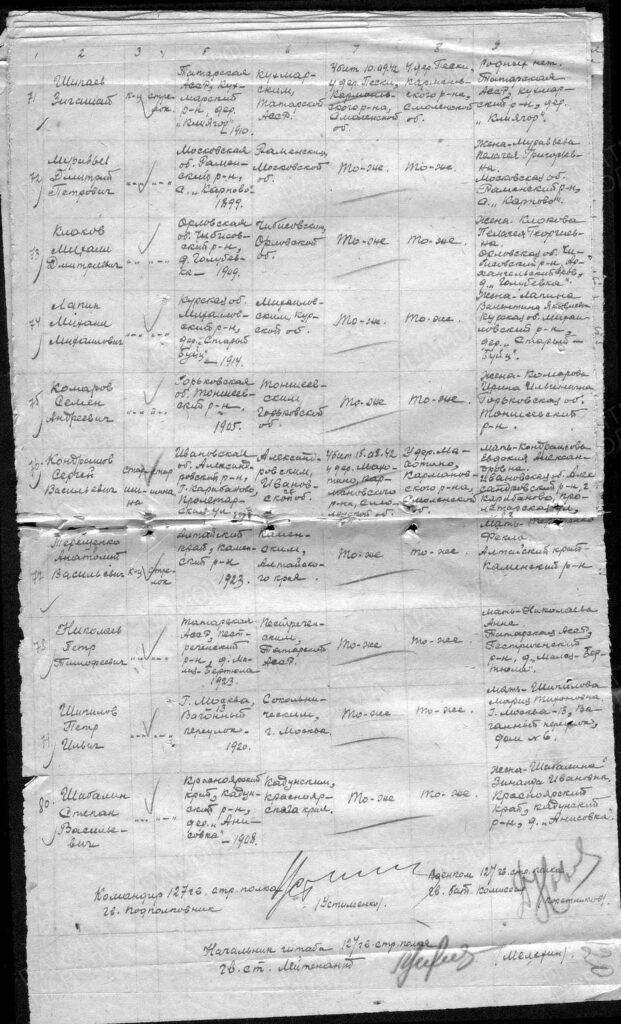 1 2 3 4 5 6 7 8 9
71
Шипаев
Зигашай
к-ц стрелок
Татарская
АССР, Кух-
марский
р-н, дер.
"Клягор"
1910.
Кухмар-
ским,
Татарской
АССР.
Убит 10.08.42
у дер. Пески,
Кармановс-
кого р-на,
Смоленской
об.
У дер. Пески,
Карманов-
ского р-на,
Смоленской
об.
Родных нет.
Татарская
АССР, Кухмар-
ский р-н, дер.
"Клягор".
72
Муравьев
Дмитрий
Петрович
-"- -"-
Московская
об. Рамен-
ский р-н,
д. "Карпово"
1899.
Раменским,
Московской
об.
То-же.
То-же.
Жена-Муравьева
Пелагея Григорьев-
на.
Московская об.
Раменский р-н,
д. "Карпово".
73
Клоков
Михаил
Дмитриевич
-"- -"-
Орловская
об. Чибисов-
ский р-н,
д. Голубев-
ка - 1909.
Чибисовским,
Орловской
об.
То-же.
То-же.
Жена-Клокова
Пелагея Георгиев-
на.
Орловская об. Чи-
бисовский р-н, Ар-
хангельский
д. "Голубевка".
74
Лапин
Михаил
Михайлович
-"- -"-
Курская об.
Михайлов-
ский р-н,
дер. "Старый
Буйц"
- 1914.
Михайлов-
ским, Кур-
ской об.
То-же.
То-же.
Жена-Лапина
Валентина Яковлевн.
Курская об. Михай-
ловский р-н,
дер. "Старый-
Буйц".
75
Комаров
Семен
Андреевич
-"- -"-
Горьковская
об. Тоншеев-
ский р-н.
1905.
Тоншеев-
ским,
Горьковской
об.
То-же.
То-же.
Жена-Комарова
Ирина Ильинична
Горьковская об.
Тоншеевский
р-н.
76
Кондрашов
Сергей
Васильевич
Ивановская
об. Александ-
ровский р-н,
г. Карабаново,
Пролетар-
ская ул.
Александ-
ровским,
Иванов-
ской об.
Убит 15.08.42
у дер. Мало-
тино, Кар-
мановского
р-на, Смо-
ленской об.
У дер. Ма-
лотино,
Карманов-
ского р-на,
Смоленской
об.
Мать-Кондрашова
Александ-
ровна.
Ивановская об. Алек-
сандровский р-н, г.
Карабаново, Про-
летарская ул.,
77
Терещенко
Анатолий
Васильевич
к-ц стре-
лок
Алтайский
край, Камен-
ский р-н
1923.
Камен-
ским,
Алтайско-
го края.
То-же
То-же.
Мать-Терещенко
Фекла
Алтайский край
Каменский р-н
78
Николаев
Петр
Тимофеевич
-"- -"-
Татарская
АССР, Пест-
реченский
р-н, д. Ма-
лиз-Вертюла
1923.
Пестречен-
ским,
Татарской
АССР.
То-же
То-же
Мать-Николаева
Анна
Татарская АССР,
Пестреченский
р-н,
79
Шипилов
Петр
Ильич
-"- -"-
Г. Москва,
Ваганный
переулок-
1920.
Сокольни-
ческим,
г. Москва.
То-же
То-же.
Мать-Шипилова
Мария Тихоновна
Г. Москва-13, Ва-
ганный переулок,
дом № 6.
80.
Шабалин
Степан
Василье-
вич
-"- -"-
Красноярский
край, Кадун-
ский р-н,
дер. "Ани-
совка" - 1908.
Кадунским,
Краснояр-
ского края.
То-же
То-же.
Жена-Шабалина
Зинаида Ивановна,
Красноярский
край, Кадунский
р-н, д. "Анисовка".
Командир 127 гв. стр. полка
гв. подполковник
(Устименко)
127 гв. стр. полка
гв. бат. комиссар
Начальник штаба 127 гв. стр. полка
гв. ст. лейтенант
(Мелехин).